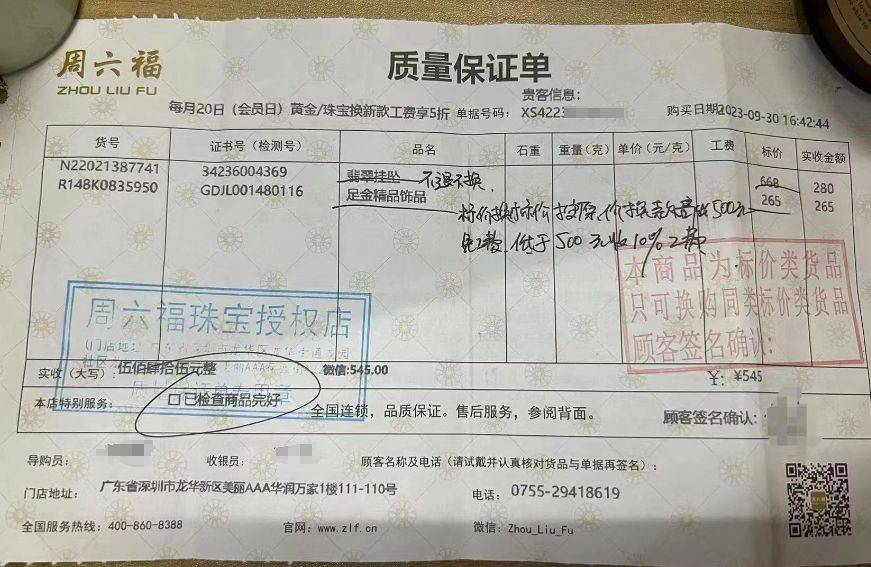 周六福
ZHOU LIU FU
质量保证单
贵客信息:
每月20日（会员日）黄金/珠宝换新款工费享5折 单据号码: XS4223
购买日期2023-09-30 16:42:44
货号 证书号（检测号） 品名 石重 重量（克） 单价（元/克） 工费 标价 实收金额
N22021387741 34236004369 翡翠挂坠 不退不换. 668 280
R148K0835950 GDJL001480116 足金精品饰品 265 265
标价换标价
500元
免工费,低于500元收10%工费
本商品为标价类货品
只可换购同类标价类货品
顾客签名确认:
周六福珠宝授权店
实收（大写）: 伍佰肆拾伍元整 微信:545.00 ¥: ¥545
本店特别服务: 口已检查商品完好 全国连锁，品质保证。售后服务，参阅背面。 顾客签名确认:
导购员: 收银员: 顾客名称及电话（请试戴并认真核对货品与单据再签名）:
门店地址: 广东省深圳市龙华新区美丽AAA华润万家1楼111-110号 电话: 0755-29418619
全国服务热线: 400-860-8388 官网: www.zlf.cn 微信: Zhou_Liu_Fu